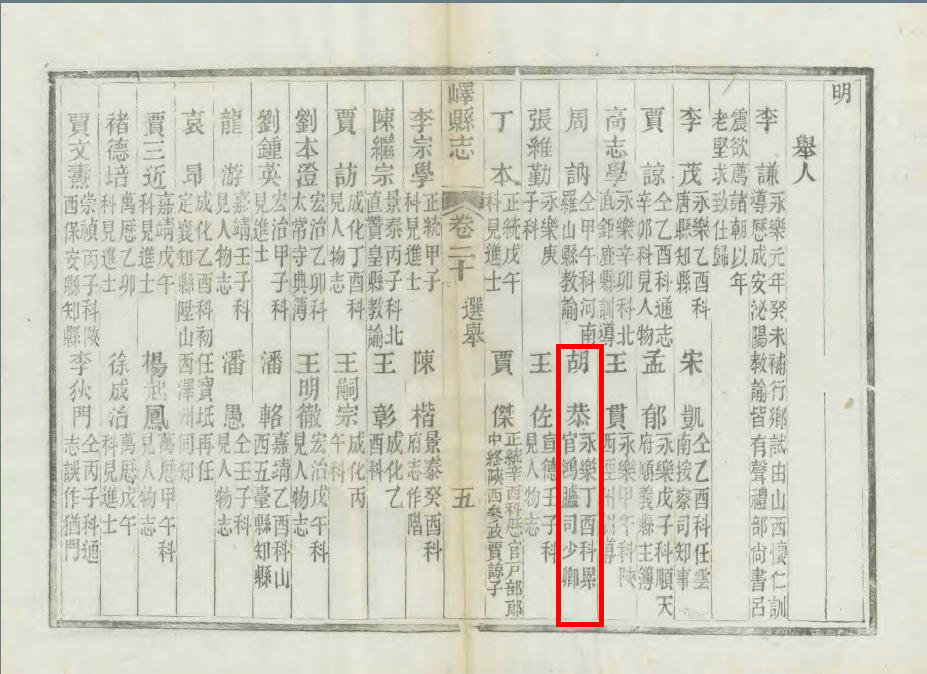 明
舉人
李謙永樂元年癸未補行鄉試由山西懷仁訓
導歷成安泌陽教諭皆有聲禮部尚書呂
震欲薦諸朝以年
老堅求致仕歸
李茂永樂乙酉科
唐縣知縣
宋凱仝乙酉科任雲
南按察司知事
賈諒仝乙酉科通志
辛卯科見人物
孟郁永樂戊子科順天
府順義縣主簿
高志學永樂辛卯科北
直鉅鹿縣訓導
王貫永樂甲午科陝
西涇州訓導
周訥仝甲午科河南
羅山縣教諭
胡恭永樂丁酉科累
官鴻臚司少卿
張維勤永樂庚
子科
王佐宣德壬子科
見人物志
丁本正統戊午
科見進士
賈傑正統辛酉科歷官戶部郎
中終陝西參政賈諒子
嶧縣志
卷二十
選舉
五
李宗學正統甲子
科見進士
陳楷景泰癸酉科
府志作階
陳繼宗景泰丙子科北
直贊皇縣教諭
王彰成化乙
酉科
賈訪成化丁酉科
見人物志
王嗣宗成化丙
午科
劉本澄宏治乙卯科
太常寺典簿
王明徹宏治戊午科
見人物志
劉鍾英宏治甲子科
見進士
潘輅嘉靖乙酉科山
西五臺縣知縣
龍游嘉靖壬子科
見人物志
潘愚仝壬子科
見人物志
袁昂成化乙酉科初任寶坻再任
定襄知縣陞山西澤州同知
賈三近嘉靖戊午
科見進士
楊起鳳萬曆甲午科
見人物志
褚德培萬曆乙卯
科見進士
徐成治萬曆戊午
科見進士
賈文燾崇禎丙子科陝
西保安縣知縣
李狄門仝丙子科通
志誤作猶門